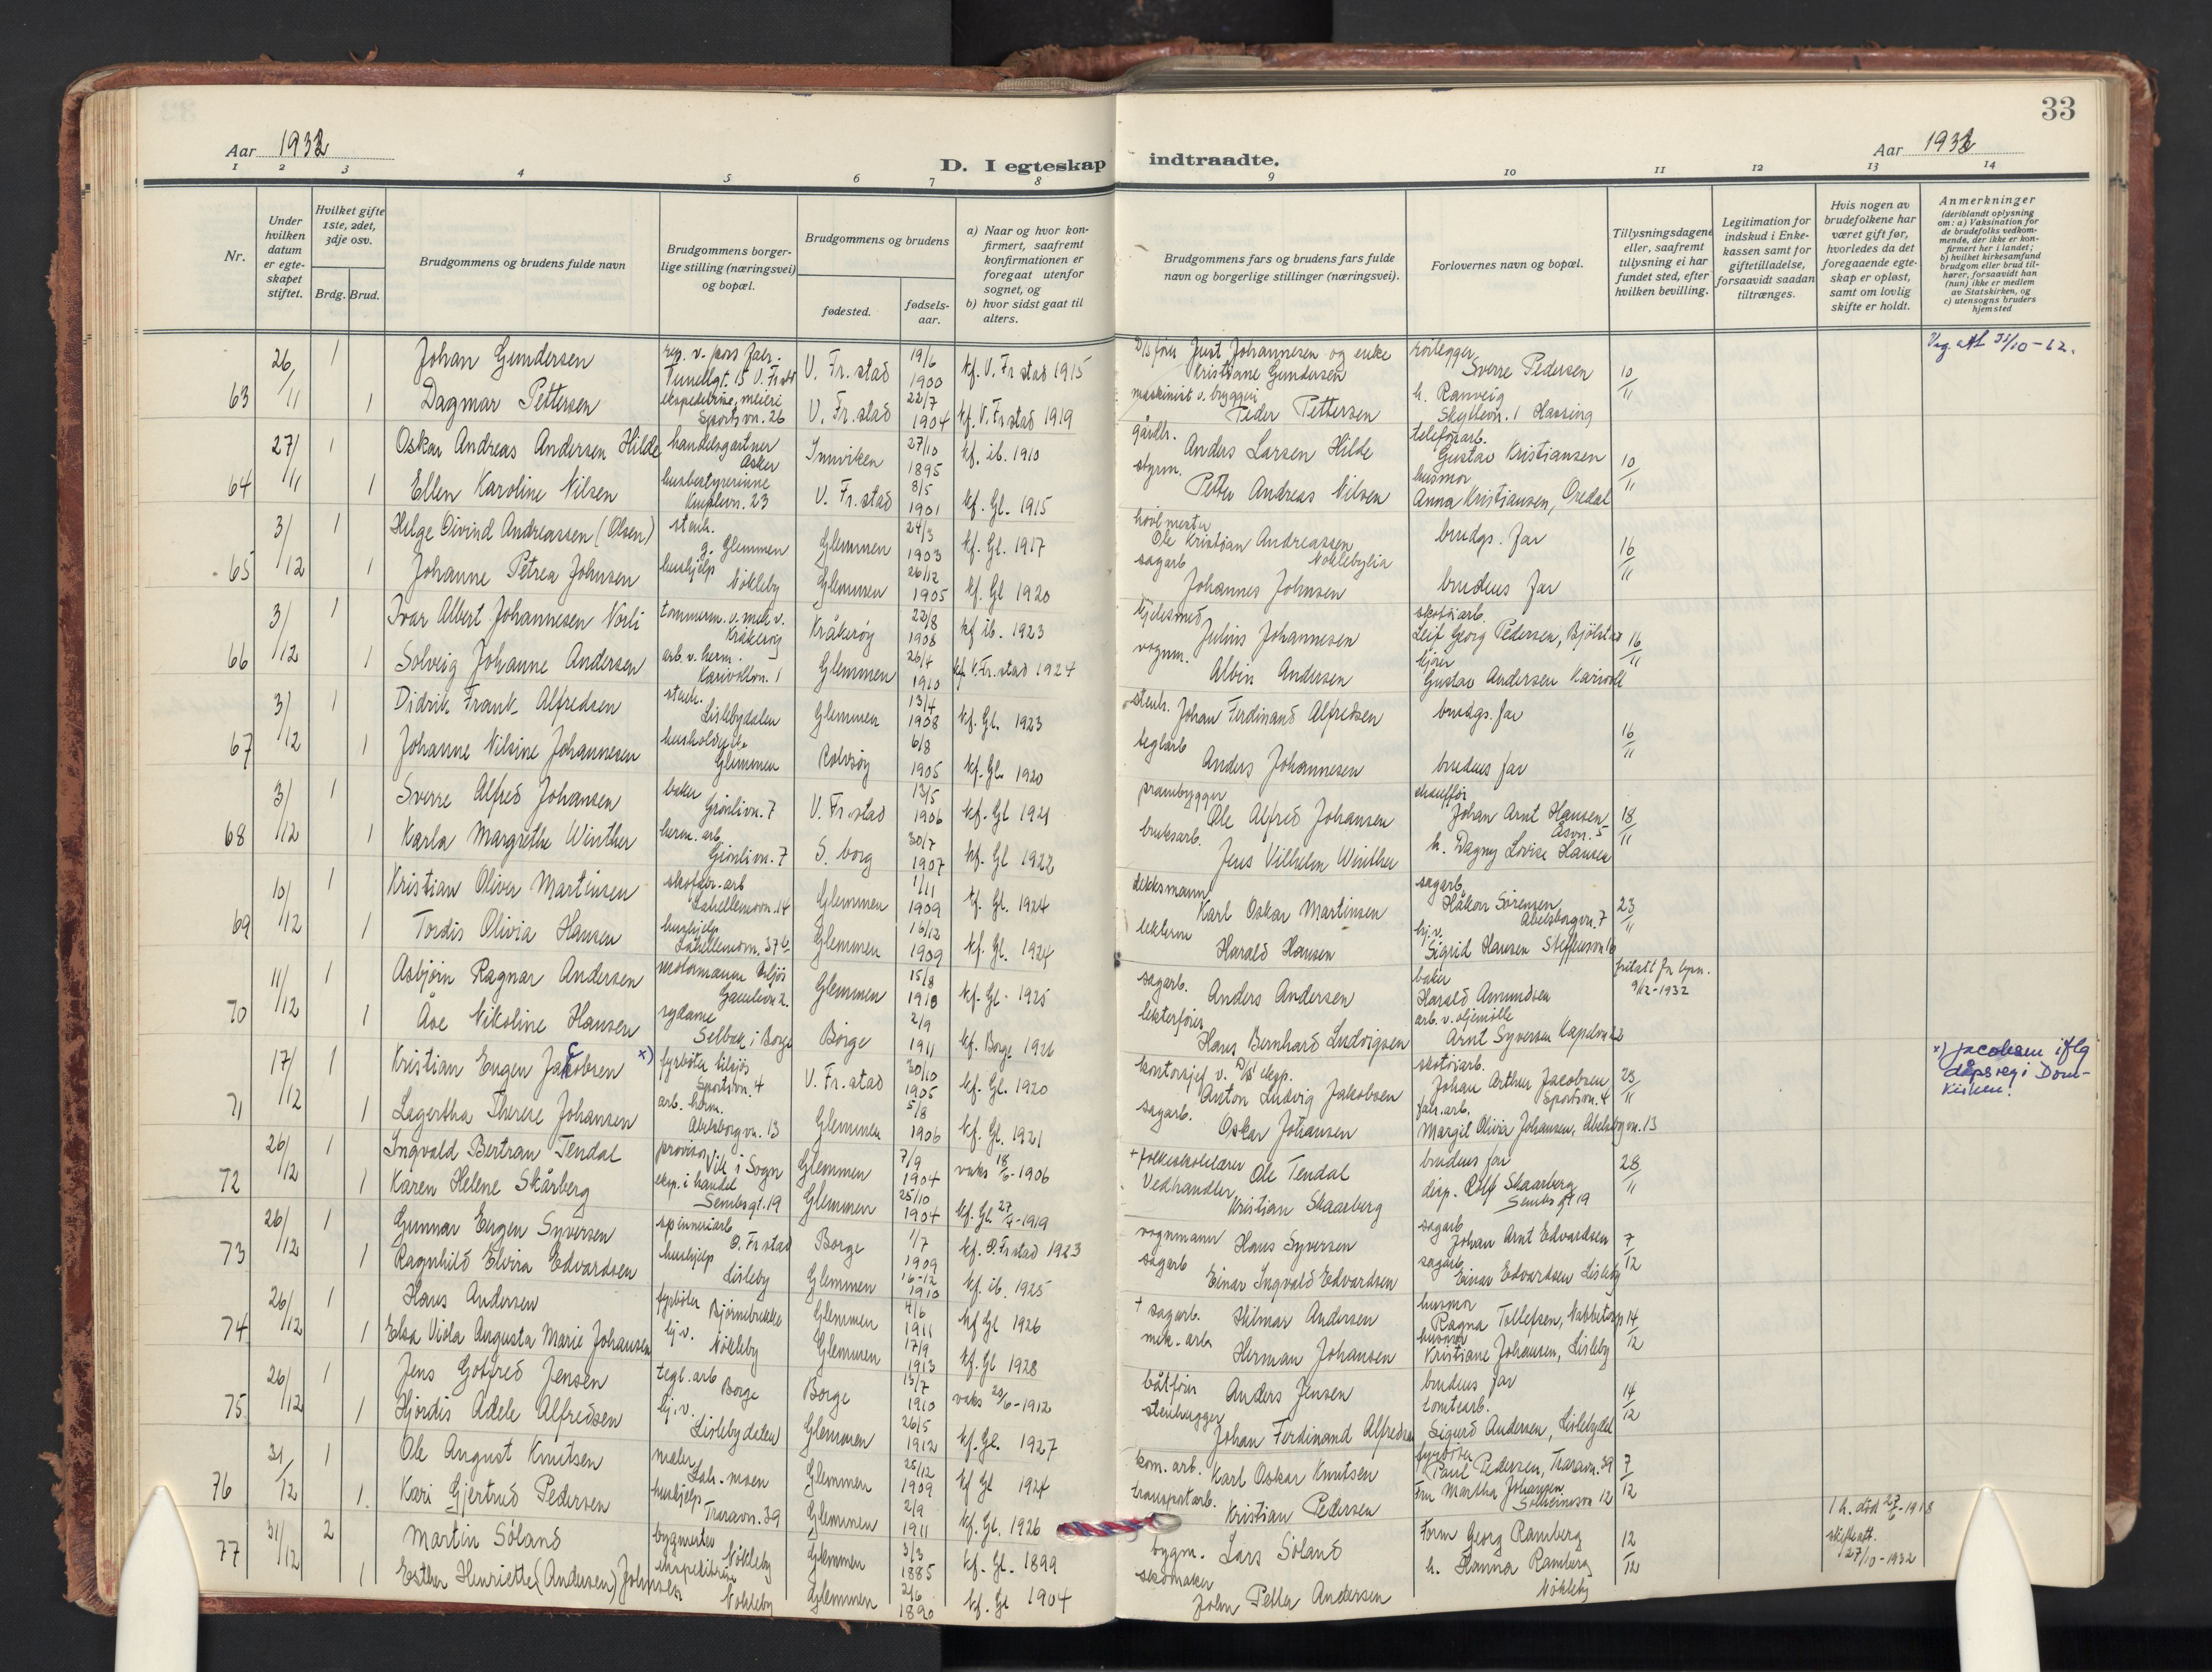 33
Aar 1932
D. I egteskap indtraadte.
Aar 1932
1 2 3 4 5 6 7 8 9 10 11 12 13 14
Nr.
Under hvilken datum er egteskapet stiftet.
Hvilket gifte 1ste, 2det, 3dje osv.
Brdg. Brud.
Brudgommens og brudens fulde navn
Brudgommens borgerlige stilling (næringsvei) og bopæl.
Brudgommens og brudens
fødested.
fødselsaar.
a) Naar og hvor konfirmert, saafremt konfirmationen er foregaat utenfor sognet, og
b) hvor sidst gaat til alters.
Brudgommens fars og brudens fars fulde navn og borgerlige stillinger (næringsvei).
Forlovernes navn og bopæl.
Tillysningsdagene eller, saafremt tillysning ei har fundet sted, efter hvilken bevilling.
Legitimation for indskud i Enkekassen samt for giftetilladelse, forsaavidt saadan tiltrænges.
Hvis nogen av brudefolkene har været gift før, hvorledes da det foregaaende egteskap er opløst, samt om lovlig skifte er holdt.
Anmerkninger
(deriblandt oplysning om: a) Vaksination for de brudefolks vedkommende, der ikke er konfirmert her i landet; b) hvilket kirkesamfund brudgom eller brud tilhører, forsaavidt han (hun) ikke er medlem av Statskirken, og c) utensogns bruders hjemsted
63 26/11 1 Johan Gundersen Tunellgt. 15 V. Fr.stad V. Fr.stad 19/6 1900 kf. V. Fr stad 1915 Just Johannesen og enke Kristiane Gundersen rørlegger Sverre Pedersen 10/11
1 Dagmar Pettersen ekspeditrise, meieri Sportsvn. 26 V. Fr.stad 22/7 1904 kf. V. Fr stad 1919 maskinist v. bryggeri Peder Pettersen h. Ranveig
64 27/11 1 Oskar Andreas Andersen Hilde handelsgartner Asker Innviken 27/10 1895 kf. ib. 1910 gårdbr. Anders Larsen Hilde telefonarb. Gustav Kristiansen 10/11
1 Ellen Karoline Nilsen husbestyrerinne V. Fr.stad 8/5 1901 kf. Gl. 1915 styrm. Petter Andreas Nilsen husmor Anna Kristiansen, Oredal
65 3/12 1 Helge Øivind Andreassen (Olsen) stenh. g. Glemmen Glemmen 24/3 1903 kf. Gl. 1917 høvlmester Ole Kristian Andreassen Nøklebylia brudgs. far 16/11
1 Johanne Petrea Johnsen hushjelp Nøkleby Glemmen 26/12 1905 kf. Gl 1920 sagarb Johannes Johnsen brudens far
66 3/12 1 Ivar Albert Johannesen Norli tømmerm. v. mek v. Kråkerøy Kråkerøy 22/8 1908 kf ib. 1923 kjelesmed Julius Johannesen skotøiarb. Leif Georg Pedersen, Bjølstad 16/11
1 Solveig Johanne Andersen arb. v. herm. Karivollvn. 1 Glemmen 26/4 1910 kf. V. Fr. stad 1924 vognm. Albin Andersen kjører Gustav Andersen Karivoll
67 3/12 1 Didrik Frank Alfredsen stenh. Lislebydalen Glemmen 13/4 1908 kf. Gl. 1923 stenh. Johan Ferdinand Alfredsen brudgs. far 16/11
1 Johanne Nilsine Johannesen Glemmen Rolvsøy 6/8 1905 kf. Gl. 1920 teglarb Anders Johannesen brudens far
68 3/12 1 Sverre Alfred Johansen baker Grønlivn. 7 V. Fr.stad 13/5 1906 kf. Gl 1921 prambygger Ole Alfred Johansen chauffør Johan Arnt Hansen Åsvn. 5 18/11
1 Karla Margrethe Winther herm. arb Grønlivn. 7 S. borg 30/7 1907 kf. Gl 1922 bruksarb. Jens Vilhelm Winther h. Dagny Lovise Hansen
69 10/12 1 Kristian Oliver Martinsen skofabr. arb Lahellemovn. 14 Glemmen 1/11 1909 kf. Gl. 1924 dekksmann Karl Oskar Martinsen sagarb. Håkon Sørensen, Abelsborgvn. 7 23/11
1 Tordis Olivia Hansen hushjelp Lahellemovn. 37 b. Glemmen 16/12 1909 kf. Gl. 1924 Harald Hansen hj.v. Sigrid Hansen
70 11/12 1 Asbjørn Ragnar Andersen motormann tilsjøs Glemmen 15/8 1910 kf. Gl. 1925 sagarb. Anders Andersen baker Harald Amundsen fritatt for lysn. 9/12-1932
1 Åse Nikoline Hansen sydame Selbak i Borge Borge 2/9 1911 kf. Borge 1926 lekterfører Hans Bernhard Ludvigsen arb. v. oljemølle Arnt Syversen
71 17/12 1 Kristian Eugen Jacobsen x) fyrbøter tilsjøs Sportsvn. 4 V. Fr.stad 30/10 1905 kf. Gl. 1920 kontorsjef v. D/S eksp. Anton Ludvig Jakobsen skotøiarb. Johan Arthur Jacobsen Sportsvn. 4 25/11
1 Lagertha Therese Johansen arb. herm. Abelsborgvn. 13 Glemmen 5/8 1906 kf. Gl. 1921 sagarb. Oskar Johansen fabr. arb. Margit Olivia Johansen, Abelsborgvn. 13
x) Jacobsen iflg dåpsreg i Domkirken.
72 26/12 1 Ingvald Bertran Tendal provisor Vik i Sogn Glemmen 7/9 1904 vaks 18/6-1906 + folkeskolelærer Ole Tendal brudens far 28/11
1 Karen Helene Skårberg eksp. i handel Sembsgt. 19 Glemmen 25/10 1904 kf. Gl. 27/4-1919 Vedhandler Kristian Skaarberg disp. Rolf Skaarberg Sembsgt 19
73 26/12 1 Gunnar Eugen Syversen spinneriarb Ø. Fr stad Borge 1/7 1909 kf. Ø. Fr stad 1923 vognmann Hans Syversen sagarb Johan Arnt Edvardsen 7/12
1 Ragnhild Elvira Edvardsen hushjelp Lisleby Glemmen 16-12 1910 kf. ib. 1925 sagarb Einar Ingvald Edvardsen sagarb Einar Edvardsen Lisleby
74 26/12 1 Hans Andersen fyrbøter Bjørnebekke Glemmen 4/6 1911 kf Gl 1926 + sagarb. Hilmar Andersen husmor Ragna Tollefsen, Nabbetorp 14/12
1 Elsa Viola Augusta Marie Johansen hj.v. Nøkleby Glemmen 17/9 1913 kf. Gl 1928 mek. arb Herman Johansen husmor Kristiane Johansen, Lisleby
75 26/12 1 Jens Gotfred Jensen tegl. arb Borge Borge 13/7 1910 vaks 20/6-1912 båtfører Anders Jensen brudens far 14/12
1 Hjørdis Adele Alfredsen hj.v. Lislebydalen Glemmen 26/5 1912 kf. Gl. 1927 stenhugger Johan Ferdinand Alfredsen tomtearb. Sigurd Andersen, Lislebydal
76 31/12 1 Ole August Knutsen maler Lah. moen Glemmen 25/12 1909 kf Gl 1924 kom. arb. Karl Oskar Knutsen fyrbøter Paul Pedersen, Traravn. 39 7/12
1 Kari Gjertrud Pedersen hushjelp Traravn. 39 Glemmen 2/9 1911 kf. Gl. 1926 transportarb. Kristian Pedersen Fru Martha Johansen
77 31/12 2 Martin Søland bygmester Nøkleby Glemmen 3/3 1885 kf. Gl. 1899 bygm. Lars Søland Form Georg Ramberg 12/12 1 h. død 27/6-1918 skifteatt. 27/10-1932
1 Esther Henriette (Andersen) Johnsen ekspeditrise Nøkleby Glemmen 2/6 1890 kf. Gl 1904 skomaker John Petter Andersen h. Hanna Ramberg Nøkleby